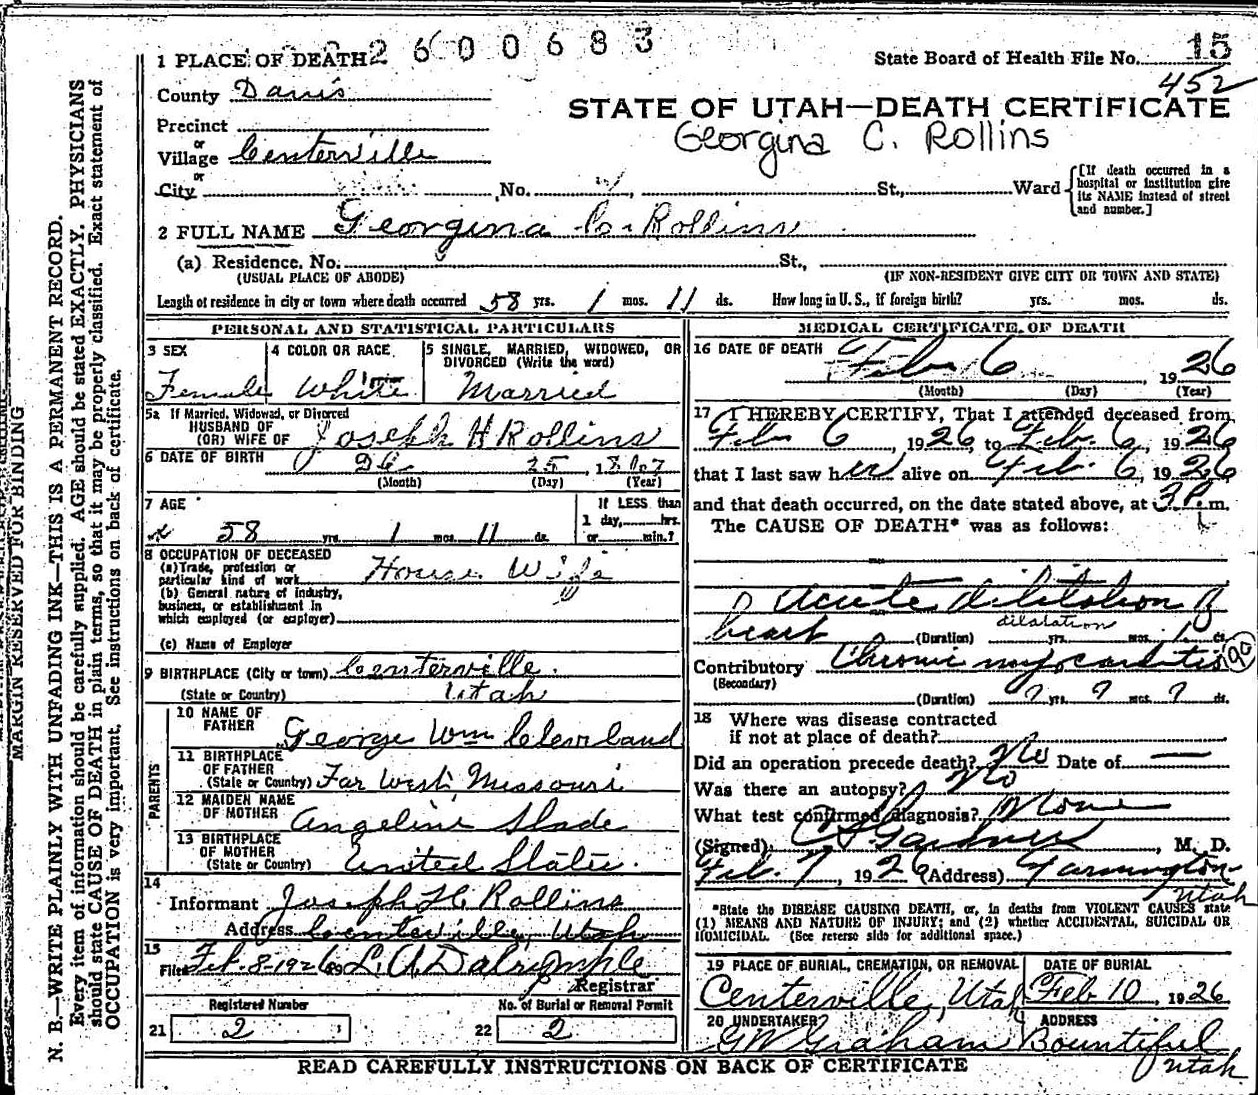 2600683
1 PLACE OF DEATH
State Board of Health File No. 15
452
County Davis
STATE OF UTAH—DEATH CERTIFICATE
Georgina C. Rollins
Precinct
or
Village Centerville
or
City No. St., Ward
[If death occurred in a hospital or institution give its NAME instead of street and number.]
2 FULL NAME Georgina C. Rollins
(a) Residence, No. St.,
(USUAL PLACE OF ABODE) (IF NON-RESIDENT GIVE CITY OR TOWN AND STATE)
Length of residence in city or town where death occurred 58 yrs. 1 mos. 11 ds. How long in U. S., if foreign birth? yrs. mos. ds.
PERSONAL AND STATISTICAL PARTICULARS
3 SEX
Female
4 COLOR OR RACE
White
5 SINGLE, MARRIED, WIDOWED, OR DIVORCED (Write the word)
Married
5a If Married, Widowed, or Divorced
HUSBAND OF
(OR) WIFE OF Joseph H Rollins
6 DATE OF BIRTH 25 , 1867
(Month) (Day) (Year)
7 AGE
58 yrs. 1 mos. 11 ds.
If LESS than
1 day, hrs.
or min.?
8 OCCUPATION OF DECEASED
(a) Trade, profession or particular kind of work House Wife
(b) General nature of industry, business, or establishment in which employed (or employer)
(c) Name of Employer
9 BIRTHPLACE (City or town) Centerville.
(State or Country) Utah
PARENTS
10 NAME OF FATHER George Wm Cleveland
11 BIRTHPLACE OF FATHER
(State or Country) Far West, Missouri
12 MAIDEN NAME OF MOTHER Angeline Slade
13 BIRTHPLACE OF MOTHER
(State or Country) United States.
14
Informant Joseph H. Rollins
Address Centerville, Utah
15
Filed Feb. 8-1926 L. A. Dalrymple
Registrar
Registered Number
21 2
No. of Burial or Removal Permit
22 2
MEDICAL CERTIFICATE OF DEATH
16 DATE OF DEATH
Feb 6 1926
(Month) (Day) (Year)
17 I HEREBY CERTIFY, That I attended deceased from
Feb 6, 1926 to Feb. 6, 1926
that I last saw her alive on Feb. 6, 1926
and that death occurred, on the date stated above, at 3 P. m.
The CAUSE OF DEATH* was as follows:
Acute dilitation of
dilatation
heart (Duration) yrs. mos. 1 ds.
Contributory Chronic myocarditis 90
(Secondary)
(Duration) ? yrs. ? mos. ? ds.
18 Where was disease contracted
if not at place of death?
Did an operation precede death? No Date of —
Was there an autopsy? No
What test confirmed diagnosis? None
(Signed) Gardner, M. D.
Feb. 7, 1926 (Address) Farmington
Utah
*State the DISEASE CAUSING DEATH, or, in deaths from VIOLENT CAUSES state
(1) MEANS AND NATURE OF INJURY; and (2) whether ACCIDENTAL, SUICIDAL OR
HOMICIDAL. (See reverse side for additional space.)
19 PLACE OF BURIAL, CREMATION, OR REMOVAL
Centerville, Utah
DATE OF BURIAL
Feb 10, 1926
20 UNDERTAKER
GW Graham
ADDRESS
Bountiful
Utah
READ CAREFULLY INSTRUCTIONS ON BACK OF CERTIFICATE
MARGIN RESERVED FOR BINDING
N. B.—WRITE PLAINLY WITH UNFADING INK—THIS IS A PERMANENT RECORD.
Every item of information should be carefully supplied. AGE should be stated EXACTLY. PHYSICIANS
should state CAUSE OF DEATH in plain terms, so that it may be properly classified. Exact statement of
OCCUPATION is very important. See instructions on back of certificate.